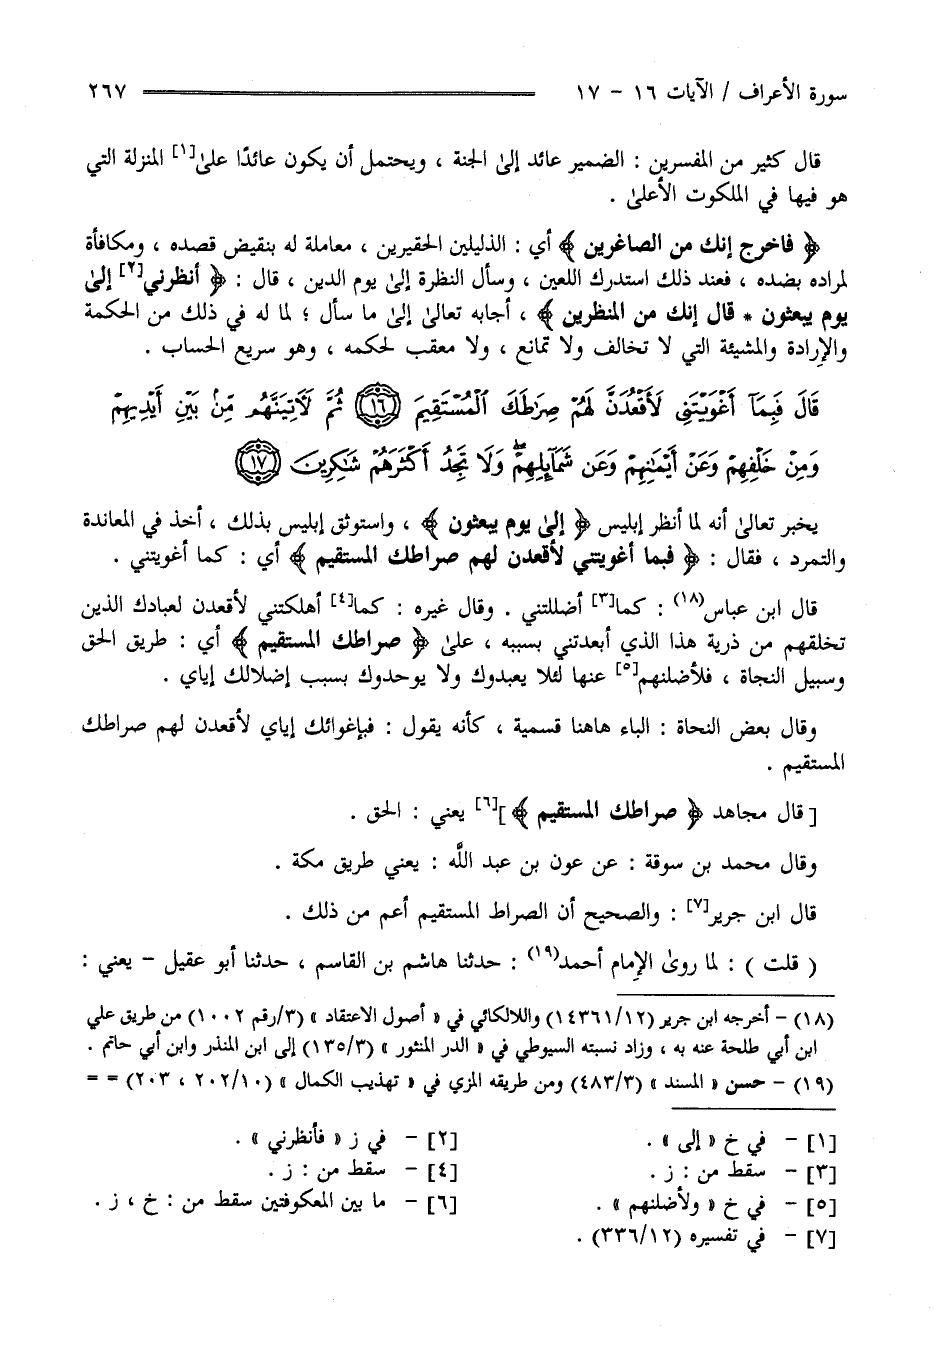 سورة الأعراف / الآيات ١٦ - ١٧ ٢٦٧
قال كثير من المفسرين : الضمير عائد إلى الجنة ، ويحتمل أن يكون عائدًا على[١] المنزلة التي
هو فيها في الملكوت الأعلى .
﴿ فاخرج إنك من الصاغرين ﴾ أي : الذليلين الحقيرين ، معاملة له بنقيض قصده ، ومكافأة
لمراده بضده ، فعند ذلك استدرك اللعين ، وسأل النظرة إلى يوم الدين ، قال : ﴿ أنظرني[٢] إلى
يوم يبعثون * قال إنك من المنظرين ﴾ ، أجابه تعالى إلى ما سأل ؛ لما له في ذلك من الحكمة
والإرادة والمشيئة التي لا تخالف ولا تمانع ، ولا معقب لحكمه ، وهو سريع الحساب .
قَالَ فَبِمَآ أَغْوَيْتَنِى لَأَقْعُدَنَّ لَهُمْ صِرَٰطَكَ ٱلْمُسْتَقِيمَ ١٦ ثُمَّ لَأَتِيَنَّهُم مِّنۢ بَيْنِ أَيْدِيهِمْ
وَمِنْ خَلْفِهِمْ وَعَنْ أَيْمَٰنِهِمْ وَعَن شَمَآئِلِهِمْ ۖ وَلَا تَجِدُ أَكْثَرَهُمْ شَٰكِرِينَ ١٧
يخبر تعالى أنه لما أنظر إبليس ﴿ إلى يوم يبعثون ﴾ ، واستوثق إبليس بذلك ، أخذ في المعاندة
والتمرد ، فقال : ﴿ فبما أغويتني لأقعدن لهم صراطك المستقيم ﴾ أي : كما أغويتني .
قال ابن عباس(١٨) : كما[٣] أضللتني . وقال غيره : كما[٤] أهلكتني لأقعدن لعبادك الذين
تخلقهم من ذرية هذا الذي أبعدتني بسببه ، على ﴿ صراطك المستقيم ﴾ أي : طريق الحق
وسبيل النجاة ، فلأضلنهم[٥] عنها لئلا يعبدوك ولا يوحدوك بسبب إضلالك إياي .
وقال بعض النحاة : الباء هاهنا قسمية ، كأنه يقول : فبإغوائك إياي لأقعدن لهم صراطك
المستقيم .
[ قال مجاهد ﴿ صراطك المستقيم ﴾][٦] يعني : الحق .
وقال محمد بن سوقة : عن عون بن عبد اللَّه : يعني طريق مكة .
قال ابن جرير[٧] : والصحيح أن الصراط المستقيم أعم من ذلك .
( قلت ) : لما روى الإمام أحمد(١٩) : حدثنا هاشم بن القاسم ، حدثنا أبو عقيل – يعني :
(١٨) – أخرجه ابن جرير (١٤٣٦١/١٢) واللالكائي في « أصول الاعتقاد » (٣/رقم ١٠٠٢) من طريق علي
ابن أبي طلحة عنه به ، وزاد نسبته السيوطي في « الدر المنثور » (١٣٥/٣) إلى ابن المنذر وابن أبي حاتم .
(١٩) – حسن « المسند » (٤٨٣/٣) ومن طريقه المزي في « تهذيب الكمال » (٢٠٢/١٠ ، ٢٠٣) = =
[١] – في خ « إلى » . [٢] – في ز « فأنظرني » .
[٣] – سقط من : ز . [٤] – سقط من : ز .
[٥] – في خ « ولأضلنهم » . [٦] – ما بين المعكوفتين سقط من : خ ، ز .
[٧] – في تفسيره (٣٣٦/١٢) .